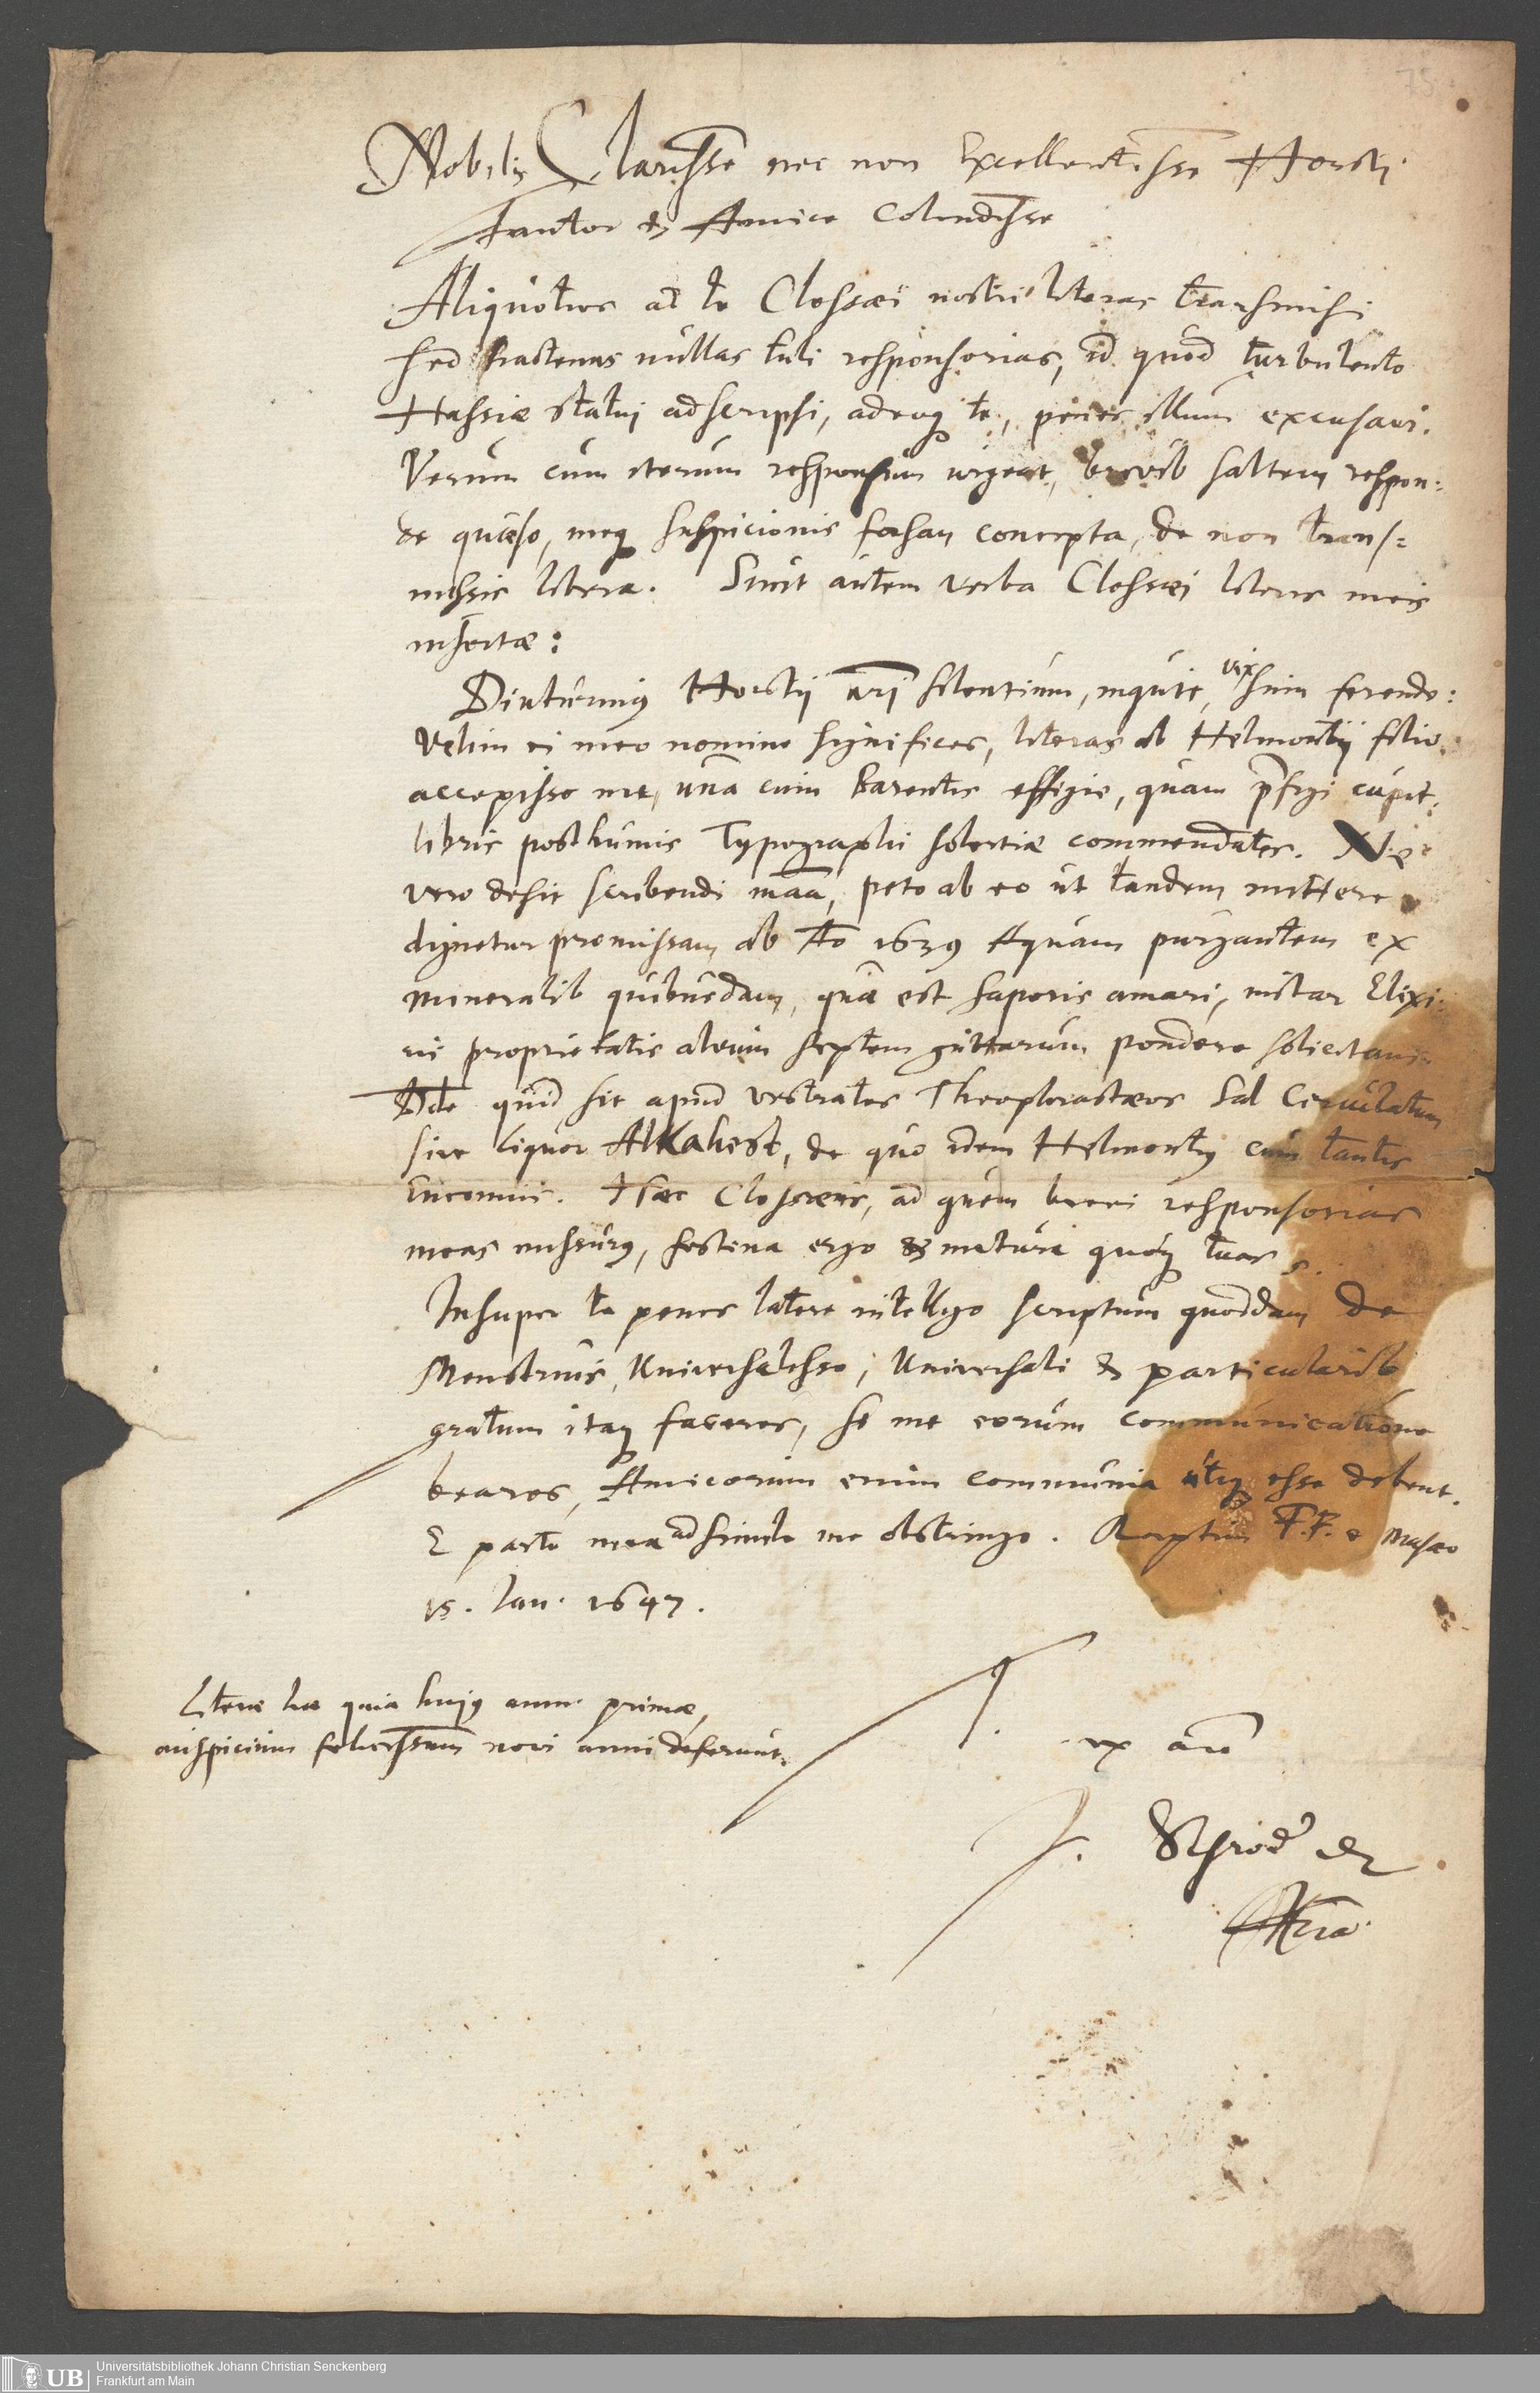 75
Nobilis Clarissme nec non Excellentissme Horsti
Fautor & Amice Colendisse
Aliquoties ad te Clossaei nostri literas transmisi
sed hactenus nullas tuli responsorias, id quod turbulento
Hassiae statui adscripsi, adeoq te, penes illum excusavi.
Verum cum iterum responsum urgeat, brevib saltem respon:
de quaeso, meq suspicionis forsan concepta, de non trans:
missis libera. Sunt autem verba Clossaei literis meis
insertae:
Diuturnius Horstii nri silentium, inquit, vix sum ferendo:
Velim ei meo nomine significes, literas ab Helmontii filio
accepisse me, una cum Parentis effigie, quam pfigi cupit
libris posthumis Typographi solertiae commendatis. Ne
vero desit scribendi maa, peto ab eo ut tandem mittere
dignetur promissam ab Ao 1639 Aquam purgantem ex
mineralib quibusdam, quae est saporis amari, instar Elixi:
rii proprietatis alvum septem guttarum pondere solicitans
Adde quid sit apud vestrates Theophrastaeos Sal Circulatum
sive liquor Alkahest, de quo idem Helmontius cum tantis
encomiis. Haec Clossaeus, ad quem brevi responsorias
meas missurus, festina ergo & matura quoq tuas
Insuper te penes latere intelligo scriptum quoddam de
Menstruis, Universalisso, Universali & particularib
gratum itaq faceres, si me eorum communicatione
beares, Amicorum enim communia utiq esse debent.
E parte mea ad simile me obstringo. Raptim F.F. e Musaeo
15. Jan. 1647.
Literae hae quia hujus anni primae,
auspicium felicissimum novi anni deferunt.
T.
ex ao
J. Schröd D
Universitätsbibliothek Johann Christian Senckenberg
Frankfurt am Main
UB